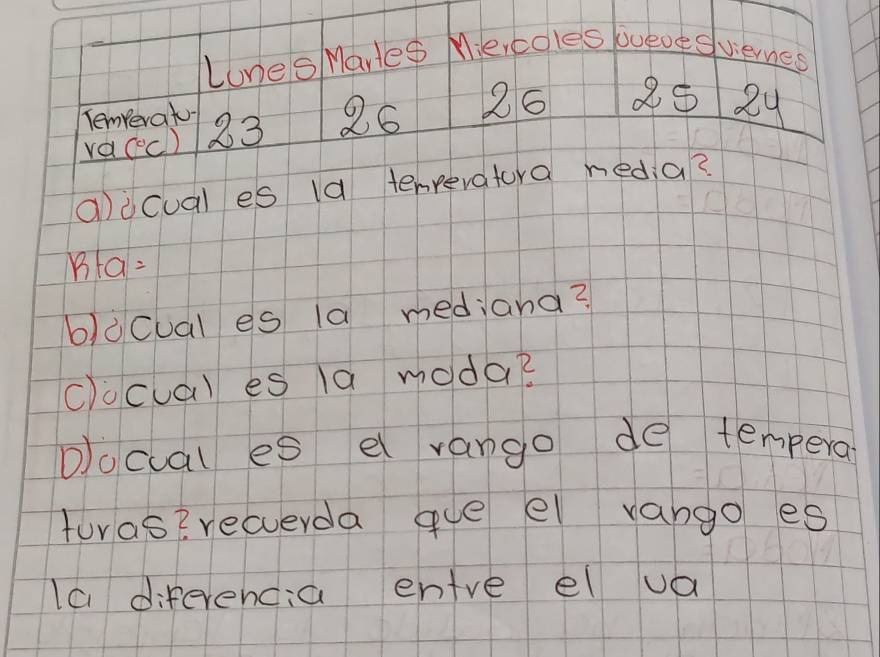 Lunes Martes Miercoles Jueves viernes
Temperatu-
ra (°C) 23 26 26 25 24
a) ¿cual es la temperatura media?
Rta=
b) ¿cual es la mediana?
c) ¿cual es la moda?
D) ¿cual es el rango de tempera-
turas? recuerda que el rango es
la diferencia entre el va